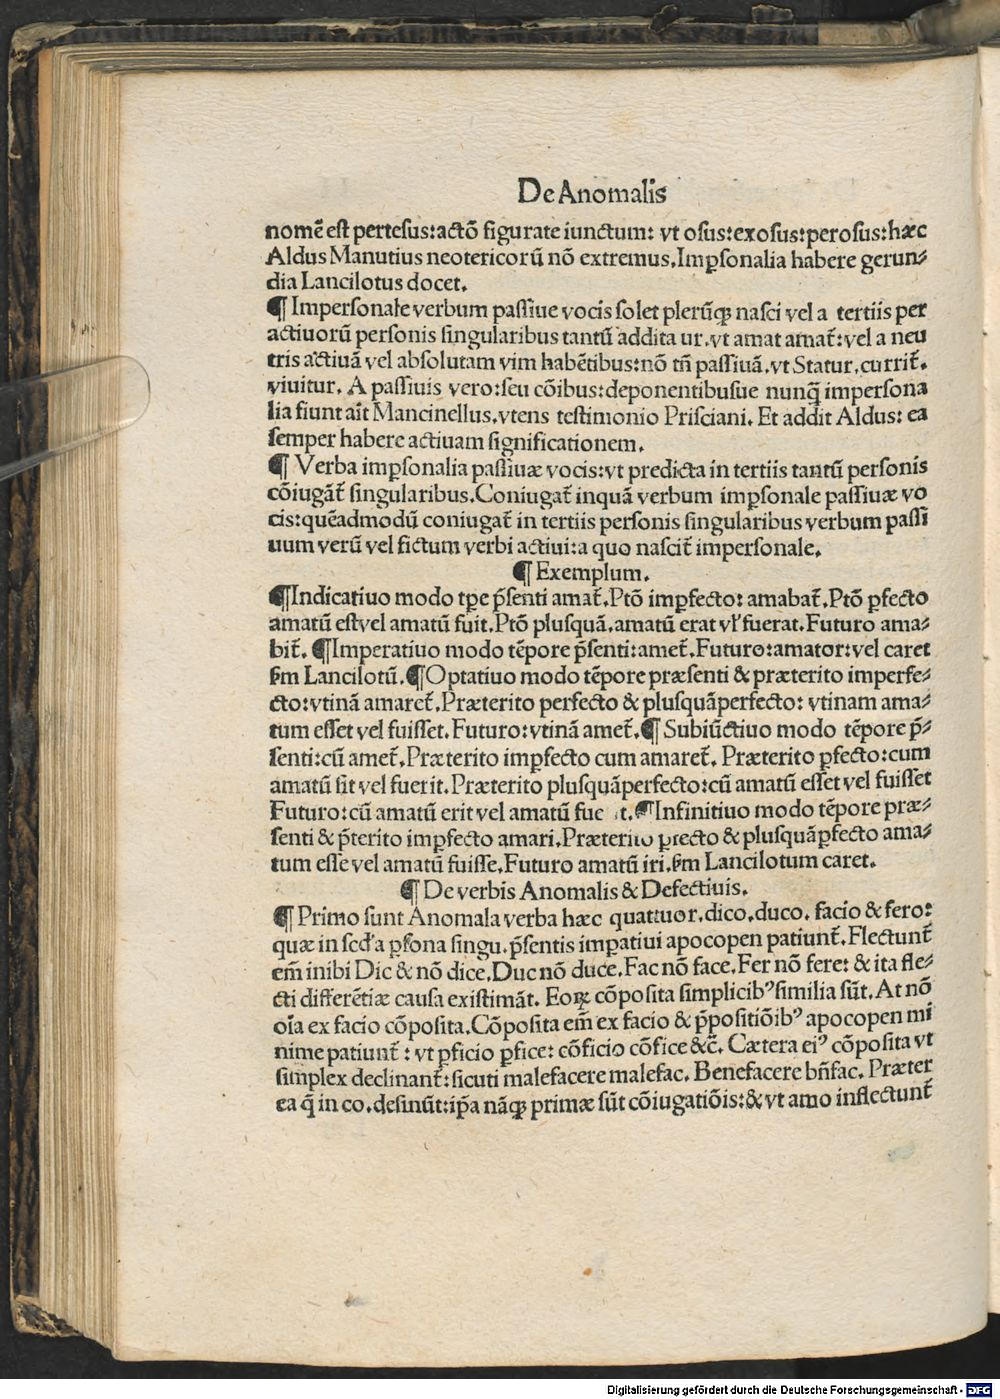 De Anomalis
nomē est pertesus: actō figurate iunctum: vt osus: exosus: perosus: hæc
Aldus Manutius neotericorū nō extremus. Imꝑsonalia habere gerun⸗
dia Lancilotus docet.
¶ Impersonale verbum passiue vocis solet plerūꝙ nasci vel a tertiis per
actiuorū personis singularibus tantū addita ur. vt amat amat̄: vel a neu
tris actiuā vel absolutam vim habētibus: nō tn̄ passiuā. vt Statur, currit̄.
viuitur. A passiuis vero: seu cōibus: deponentibusue nunq̄ impersona
lia fiunt ait Mancinellus. vtens testimonio Prisciani. Et addit Aldus: ea
semper habere actiuam significationem.
¶ Verba imꝑsonalia passiuæ vocis: vt predicta in tertiis tantū personis
cōiugāt̄ singularibus. Coniugat̄ inquā verbum imꝑsonale passiuæ vo
cis: quēadmodū coniugat̄ in tertiis personis singularibus verbum passi
uum verū vel fictum verbi actiui: a quo nascit̄ impersonale.
¶ Exemplum.
¶ Indicatiuo modo tꝑe p̄senti amat̄. Ptō imꝑfecto: amabat̄. Ptō ꝑfecto
amatū est vel amatū fuit. Ptō plusquā. amatū erat vł fuerat. Futuro ama⸗
bit̄. ¶ Imperatiuo modo tēpore p̄senti: amet̄. Futuro: amator: vel caret
ẜm Lancilotū. ¶ Optatiuo modo tēpore præsenti & præterito imperfe⸗
cto: vtinā amaret̄. Præterito perfecto & plusquāperfecto: vtinam ama⸗
tum esset vel fuisset. Futuro: vtinā amet̄. ¶ Subiūctiuo modo tēpore p̄⸗
senti: cū amet̄. Præterito imꝑfecto cum amaret̄. Præterito ꝑfecto: cum
amatū sit vel fuerit. Præterito plusquāperfecto: cū amatū esset vel fuisset
Futuro: cū amatū erit vel amatū fue t. ¶ Infinitiuo modo tēpore præ⸗
senti & p̄terito imꝑfecto amari. Præterito & plusquāꝑfecto ama⸗
tum esse vel amatū fuisse. Futuro amatū iri. ẜm Lancilotum caret.
¶ De verbis Anomalis & Defectiuis.
¶ Primo sunt Anomala verba hæc quattuor. dico. duco. facio & fero:
quæ in scd'a ꝑsona singu. p̄sentis imꝑatiui apocopen patiunt̄. Flectunt̄
em̄ inibi Dic & nō dice. Duc nō duce. Fac nō face. Fer nō fere: & ita fle⸗
cti differētiæ causa existimāt. Eoꝝ cōposita simplicibꝰ similia sūt. At nō
oīa ex facio cōposita. Cōposita em̄ ex facio & p̄positiōibꝰ apocopen mi
nime patiunt̄: vt ꝑficio ꝑfice: cōficio cōfice &c̄. Cætera eiꝰ cōposita vt
simplex declinant̄: sicuti malefacere malefac. Benefacere bn̄fac. Præter
ea q̄ in co. desinūt: ip̄a nāꝙ primæ sūt cōiugatiōis: & vt amo inflectunt̄
Digitalisierung gefördert durch die Deutsche Forschungsgemeinschaft - DFG